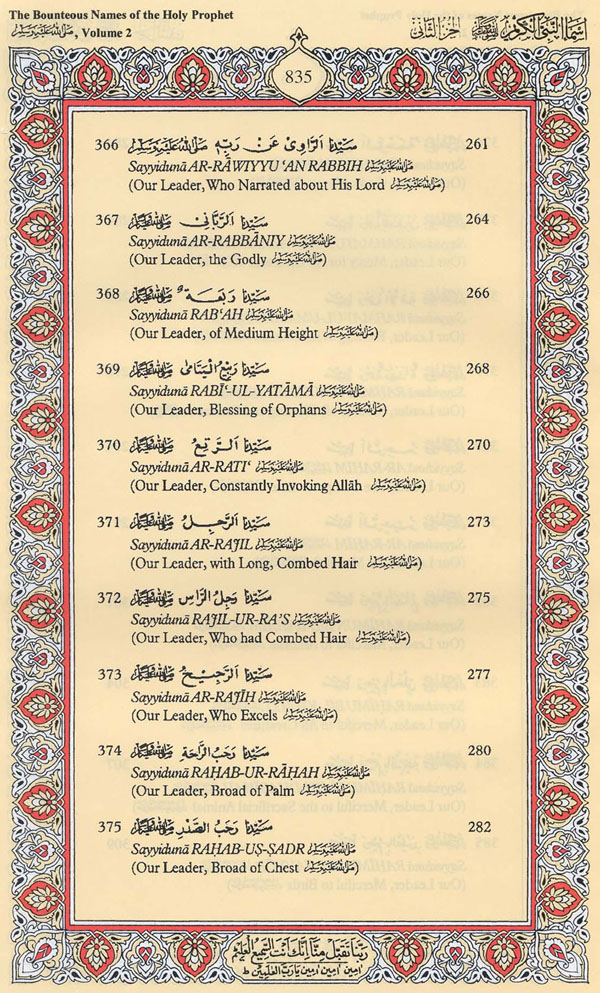 The Bounteous Names of the Holy Prophet
ﷺ, Volume 2
اسماء النبی الکریم ﷺ الجزء الثانی
835
366 سَيِّدُنَا اَلرَّاوِيْ عَنْ رَبِّهٖ ﷺ 261
Sayyidunā AR-RĀWIYYU ‘AN RABBIH ﷺ
(Our Leader, Who Narrated about His Lord ﷺ)
367 سَيِّدُنَا اَلرَّبَّانِيْ ﷺ 264
Sayyidunā AR-RABBĀNIY ﷺ
(Our Leader, the Godly ﷺ)
368 سَيِّدُنَا رَبْعَةٌ ﷺ 266
Sayyidunā RAB‘AH ﷺ
(Our Leader, of Medium Height ﷺ)
369 سَيِّدُنَا رَبِيْعُ الْيَتَامٰى ﷺ 268
Sayyidunā RABĪ‘-UL-YATĀMĀ ﷺ
(Our Leader, Blessing of Orphans ﷺ)
370 سَيِّدُنَا اَلرَّتِعُ ﷺ 270
Sayyidunā AR-RATI‘ ﷺ
(Our Leader, Constantly Invoking Allāh ﷺ)
371 سَيِّدُنَا اَلرَّجِلُ ﷺ 273
Sayyidunā AR-RAJIL ﷺ
(Our Leader, with Long, Combed Hair ﷺ)
372 سَيِّدُنَا رَجِلُ الرَّاْسِ ﷺ 275
Sayyidunā RAJIL-UR-RA’S ﷺ
(Our Leader, Who had Combed Hair ﷺ)
373 سَيِّدُنَا اَلرَّجِيْحُ ﷺ 277
Sayyidunā AR-RAJĪH ﷺ
(Our Leader, Who Excels ﷺ)
374 سَيِّدُنَا رَحَبُ الرَّاحَةِ ﷺ 280
Sayyidunā RAḤAB-UR-RĀḤAH ﷺ
(Our Leader, Broad of Palm ﷺ)
375 سَيِّدُنَا رَحَبُ الصَّدْرِ ﷺ 282
Sayyidunā RAḤAB-UṢ-ṢADR ﷺ
(Our Leader, Broad of Chest ﷺ)
رَبَّنَا تَقَبَّلْ مِنَّا اِنَّكَ اَنْتَ السَّمِيْعُ الْعَلِيْمُ
اٰمين اٰمين اٰمين يارب العٰلمين ط